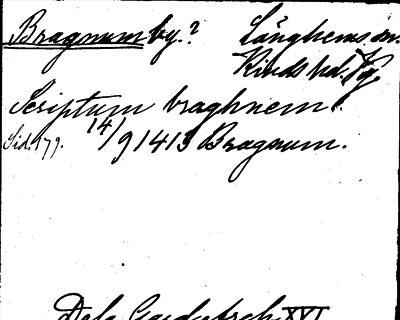 Bragnum by.? Långhems sn.
Kinds hd. Vg.
Scriptum braghnem.
Sid. 179. 14/9 1413 Bragnum.
Dela Gardutsch XVI